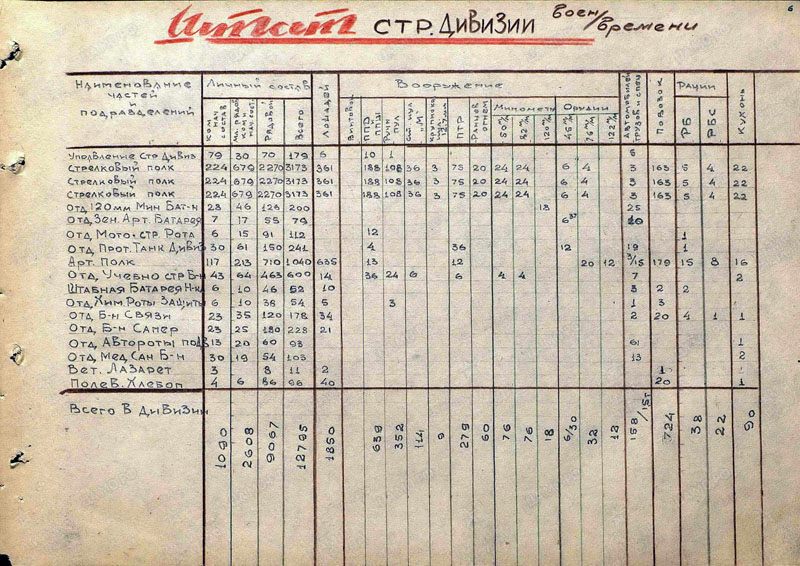 6
Штат стр. дивизии воен/времени
Наименование частей и подразделений
Личный состав
Лошадей
Вооружение
Автомобилей
Повозок
Рации
Кухонь
Ком нач состав
Рядовой
Всего
Винтовок
ППД ППШ
Ручн пул
ПТР
Ранцев огнем
Минометы
50 м/м
82 м/м
120 м/м
Орудии
45 м/м
76 м/м
122 м/м
РБ
РБС
Управление Стр Дивиз 79 30 70 179 6 10 1 6
Стрелковый полк 224 679 2270 3173 361 188 108 36 3 75 20 24 24 6 4 3 163 5 4 22
Стрелковый полк 224 679 2270 3173 361 188 108 36 3 75 20 24 24 6 4 3 163 5 4 22
Стрелковый полк 224 679 2270 3173 361 188 108 36 3 75 20 24 24 6 4 3 163 5 4 22
Отд. 120мм Мин Бат-н 28 46 126 200 18 25
Отд. Зен. Арт. Батарея 7 17 55 79 6 37
Отд. Мото-стр. Рота 6 15 91 112 12 1
Отд. Прот. Танк Дивиз 30 61 150 241 4 36 12 19 1
Арт. Полк 117 213 710 1040 635 13 12 20 12 3/15 179 15 8 16
Отд. Учебно стр Б-н 43 64 463 600 14 36 24 6 6 4 4 7 2
Штабная Батарея Н-ка 6 10 46 52 10 3 2 2
Отд. Хим. Роты Защиты 6 10 38 54 5 3 1 3
Отд. Б-н Связи 23 35 120 178 34 2 20 4 1 1
Отд. Б-н Сапер 23 25 180 228 21
Отд. Автороты подв 13 20 60 93 61 1
Отд. Мед. Сан Б-н 30 19 54 103 13 2
Вет. Лазарет 3 8 11 2 1
Полев. Хлебоп 4 6 86 96 40 20 1
Всего в дивизии 1090 2608 9067 12795 1850 639 352 114 9 279 60 76 76 18 6/30 32 12 158/15т 724 38 22 90